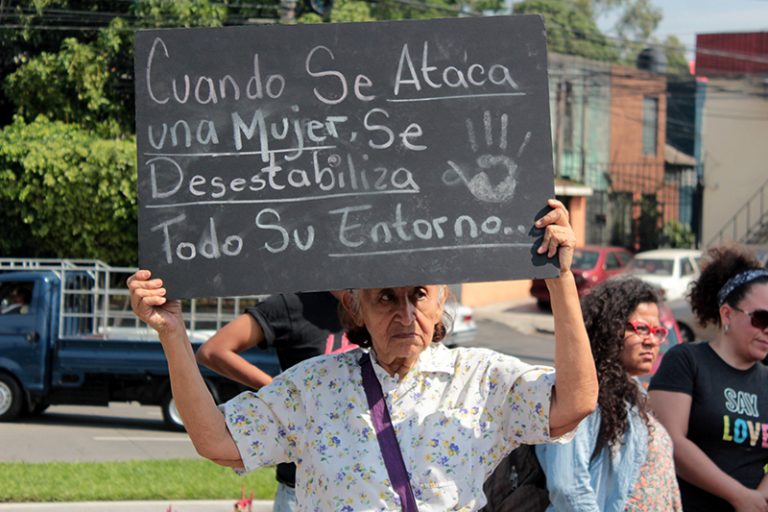 Cuando Se Ataca
una Mujer, Se
Desestabiliza
Todo Su Entorno...
SAY
LOVE